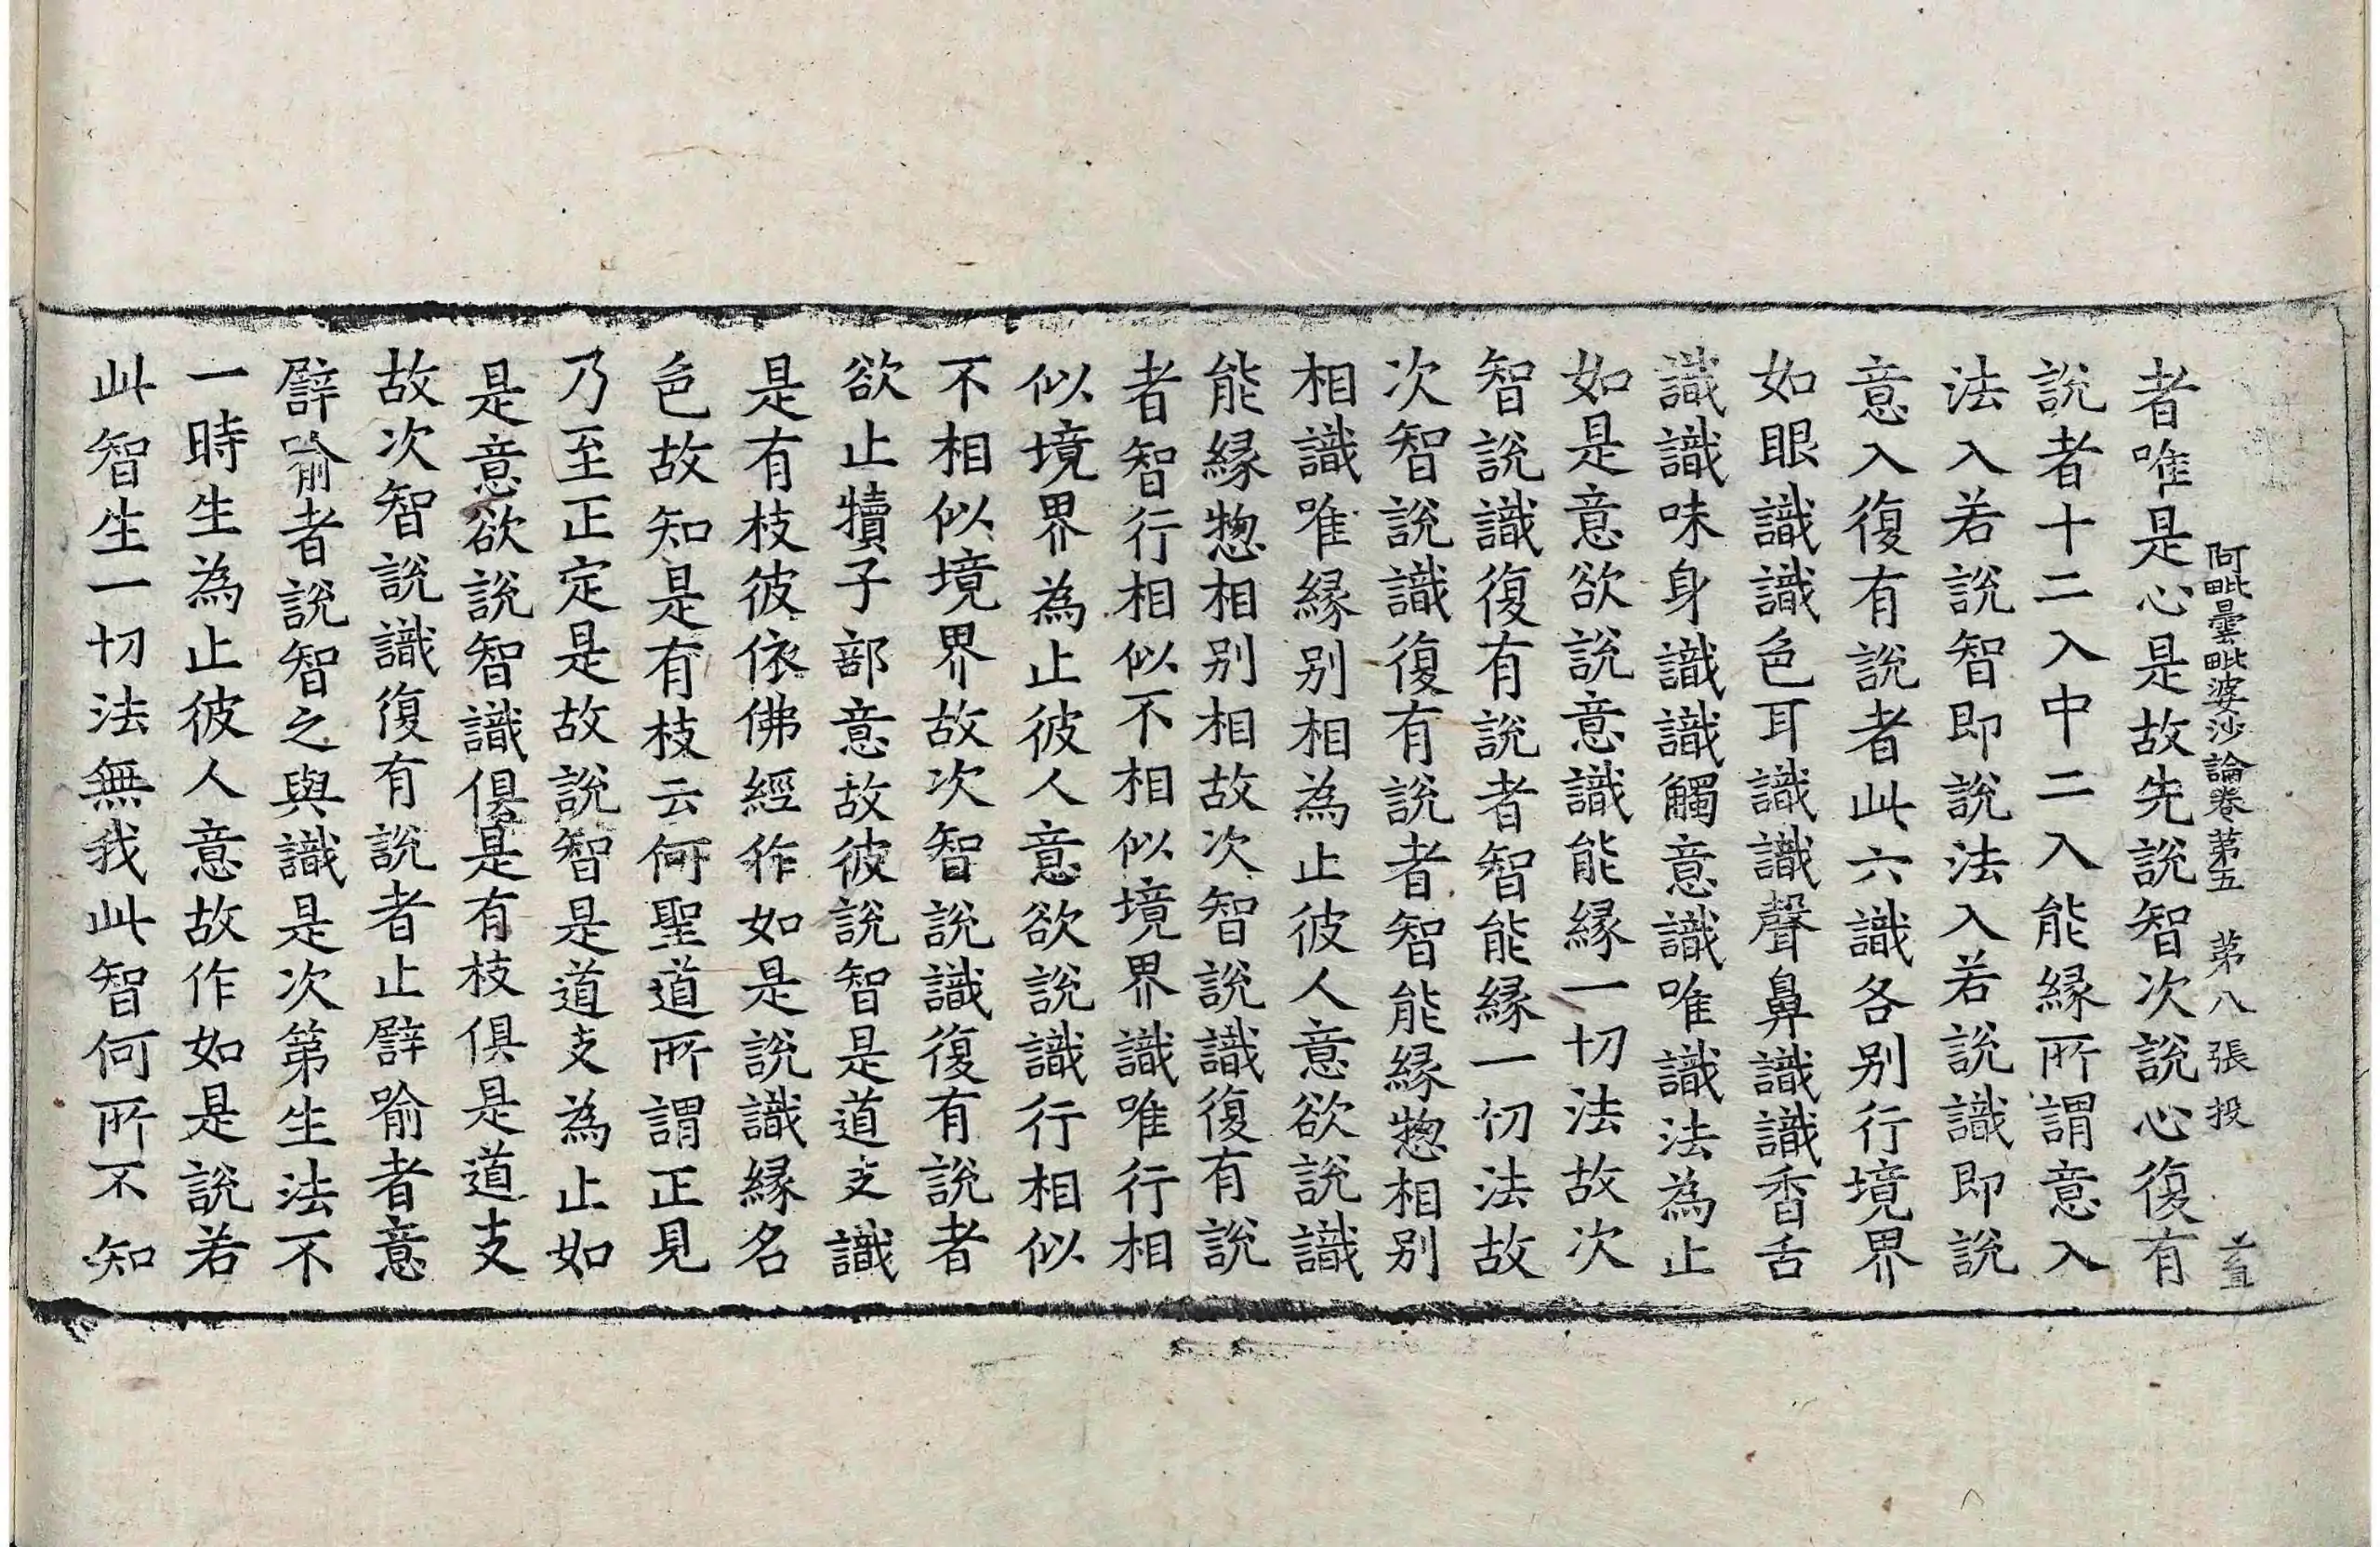 阿毗曇毗婆沙論卷第五 第八張 投
者唯是心是故先說智次說心復有
說者十二入中二入能緣所謂意入
法入若說智即說法入若說識即說
意入復有說者此六識各別行境界
如眼識識色耳識識聲鼻識識香舌
識識味身識識觸意識唯識法為止
如是意欲說意識能緣一切法故次
智說識復有說者智能緣一切法故
次智說識復有說者智能緣惣相別
相識唯緣別相為止彼人意欲說識
能緣惣相別相故次智說識復有說
者智行相似不相似境界識唯行相
似境界為止彼人意欲說識行相似
不相似境界故次智說識復有說者
欲止犢子部意故彼說智是道支識
是有枝彼依佛經作如是說識緣名
色故知是有枝云何聖道所謂正見
乃至正定是故說智是道支為止如
是意欲說智識俱是有枝俱是道支
故次智說識復有說者止譬喻者意
譬喻者說智之與識是次第生法不
一時生為止彼人意故作如是說若
此智生一切法無我此智何所不知